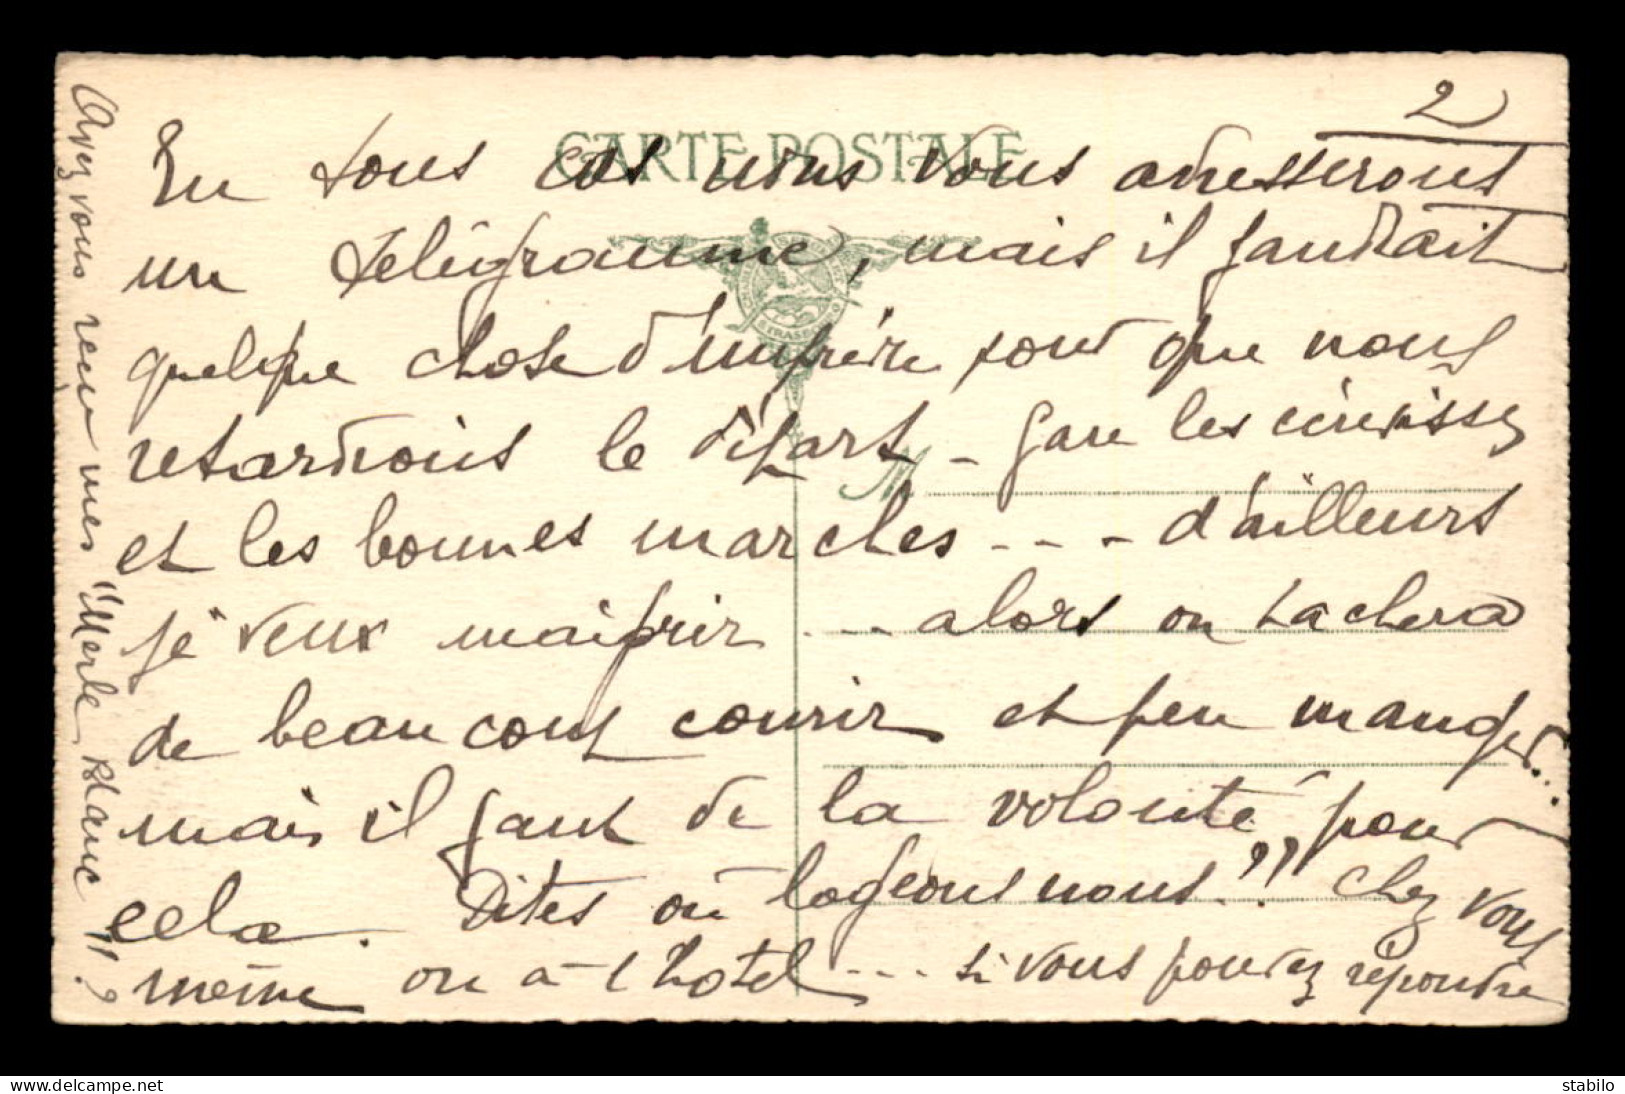 2
CARTE POSTALE
En tous cas nous vous adresserons
un télégramme, mais il faudrait
quelque chose d'imprévu pour que nous
retardions le départ - gare les
et les bonnes marches - - - d'ailleurs
je veux maigrir - - - alors on tachera
de beaucoup courir et peu manger...
mais il faut de la volonté pour
cela. Dites où logeons nous!! chez vous
même ou à l'hotel - - - si vous pouvez répondre
Avez vous reçu mes "Merle Blanc"?
STRASBOURG
stabilo